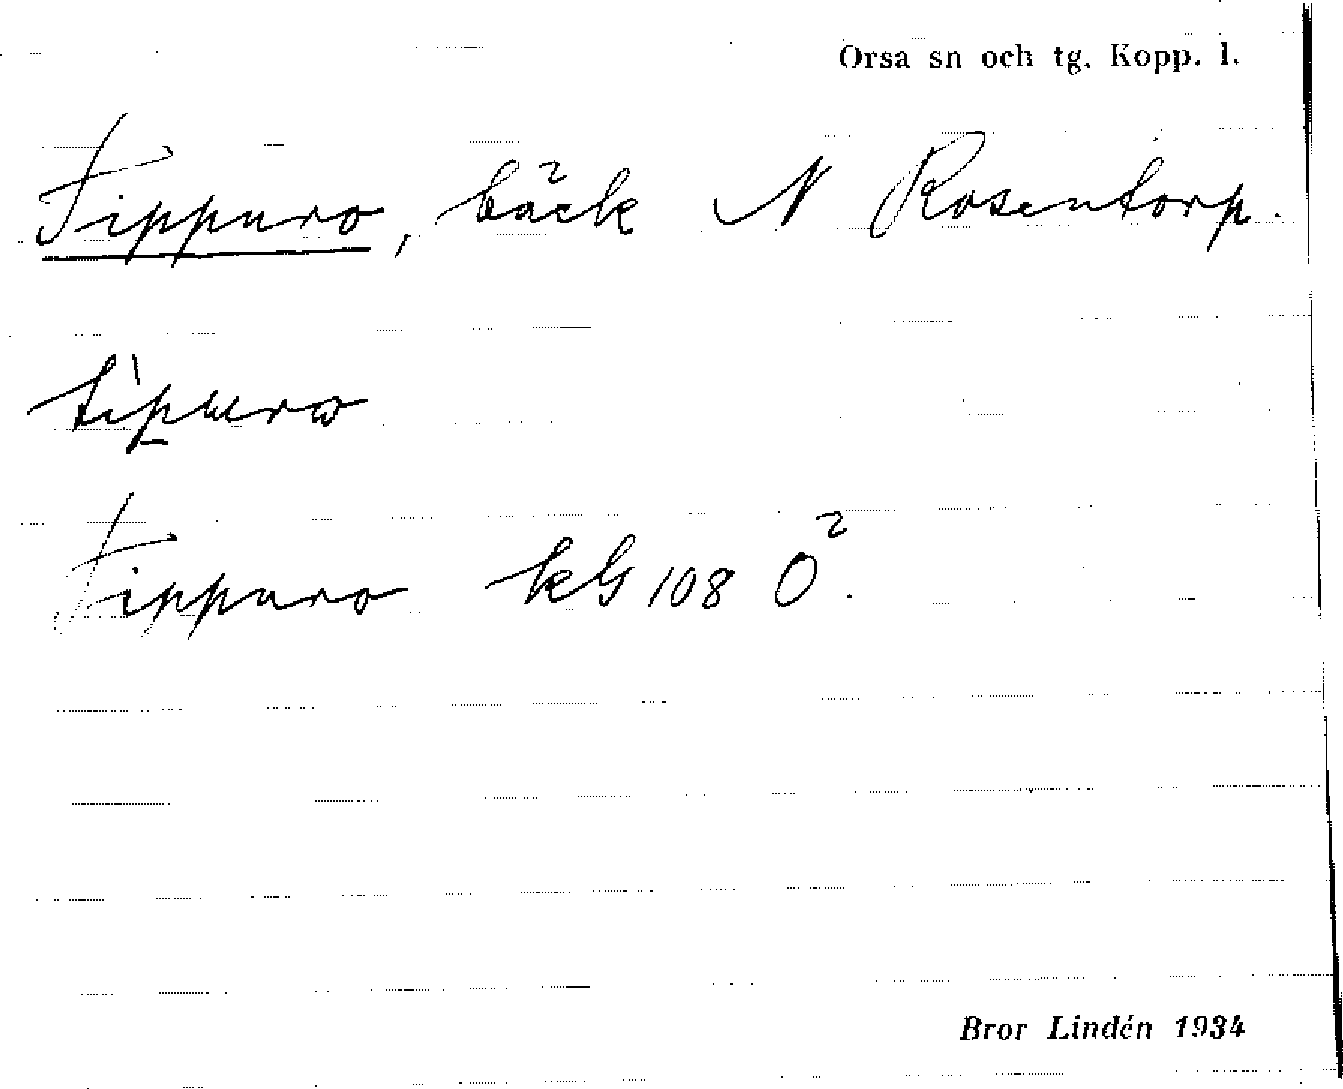 Orsa sn och tg. Kopp. l.
Tippuro, bäck N Rosentorp.
Tippuro kG 108 Ö.
Bror Lindén 1934